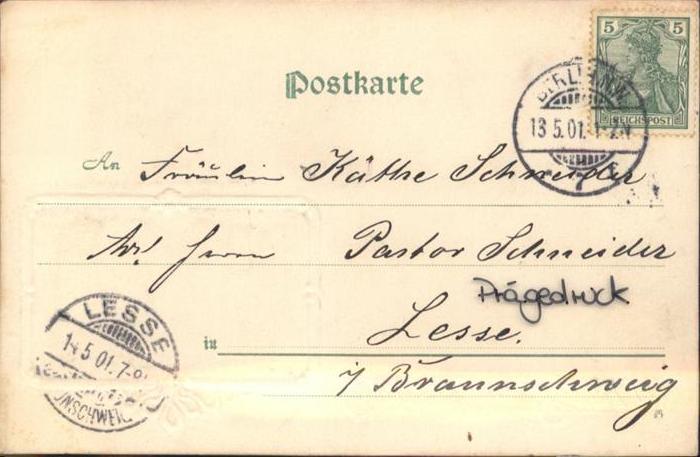 5 5
REICHSPOST
Postkarte
BERLIN N.W.
13.5.01. 1-2N
7
An Fräulein Käthe Schneider
Adr. Herrn Pastor Schneider
Prägedruck
in Lesse.
i/ Braunschweig
LESSE
14.5.01. 7-8